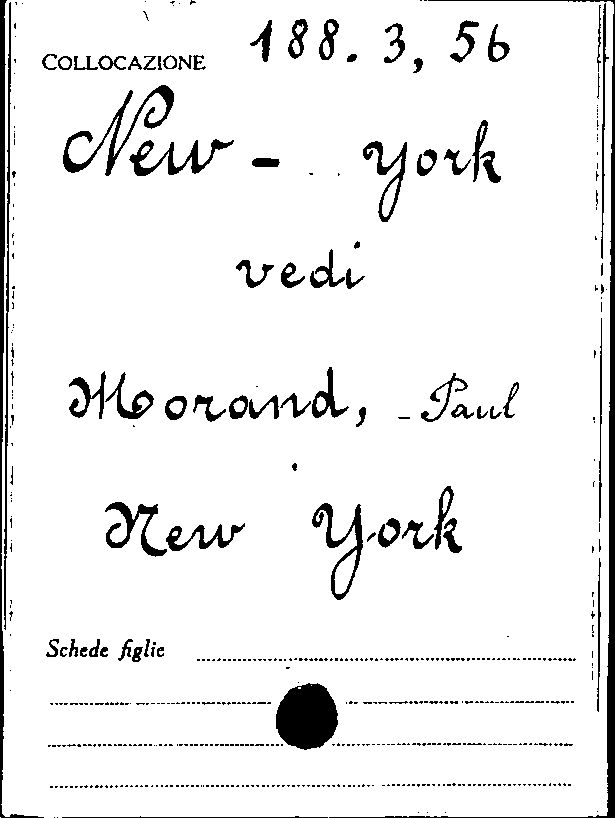 COLLOCAZIONE 188. 3, 56
New - York
vedi
Morand, - Paul
New York
Schede figlie